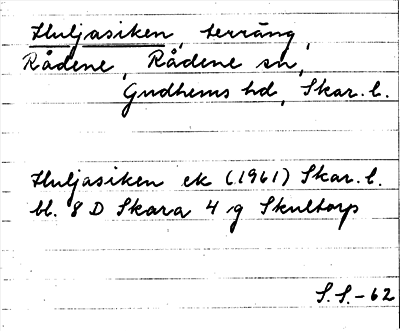 Huljasiken, terräng,
Rådene, Rådene sn,
Gudhems hd, Skar. l.
Huljasiken ek (1961) Skar. l.
bl. 8 D Skara 4 g Skultorp
S.S.-62